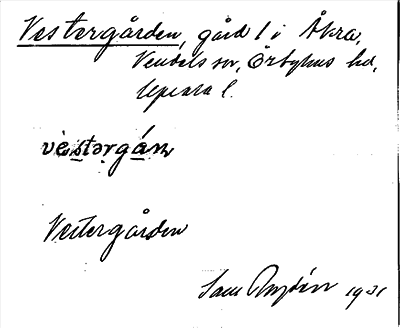 Vestergården, gård 1 i Åkra,
Vendels sn, Örbyhus hd,
Upsala l.
vèstərgán
Vestergården
Sam 1931